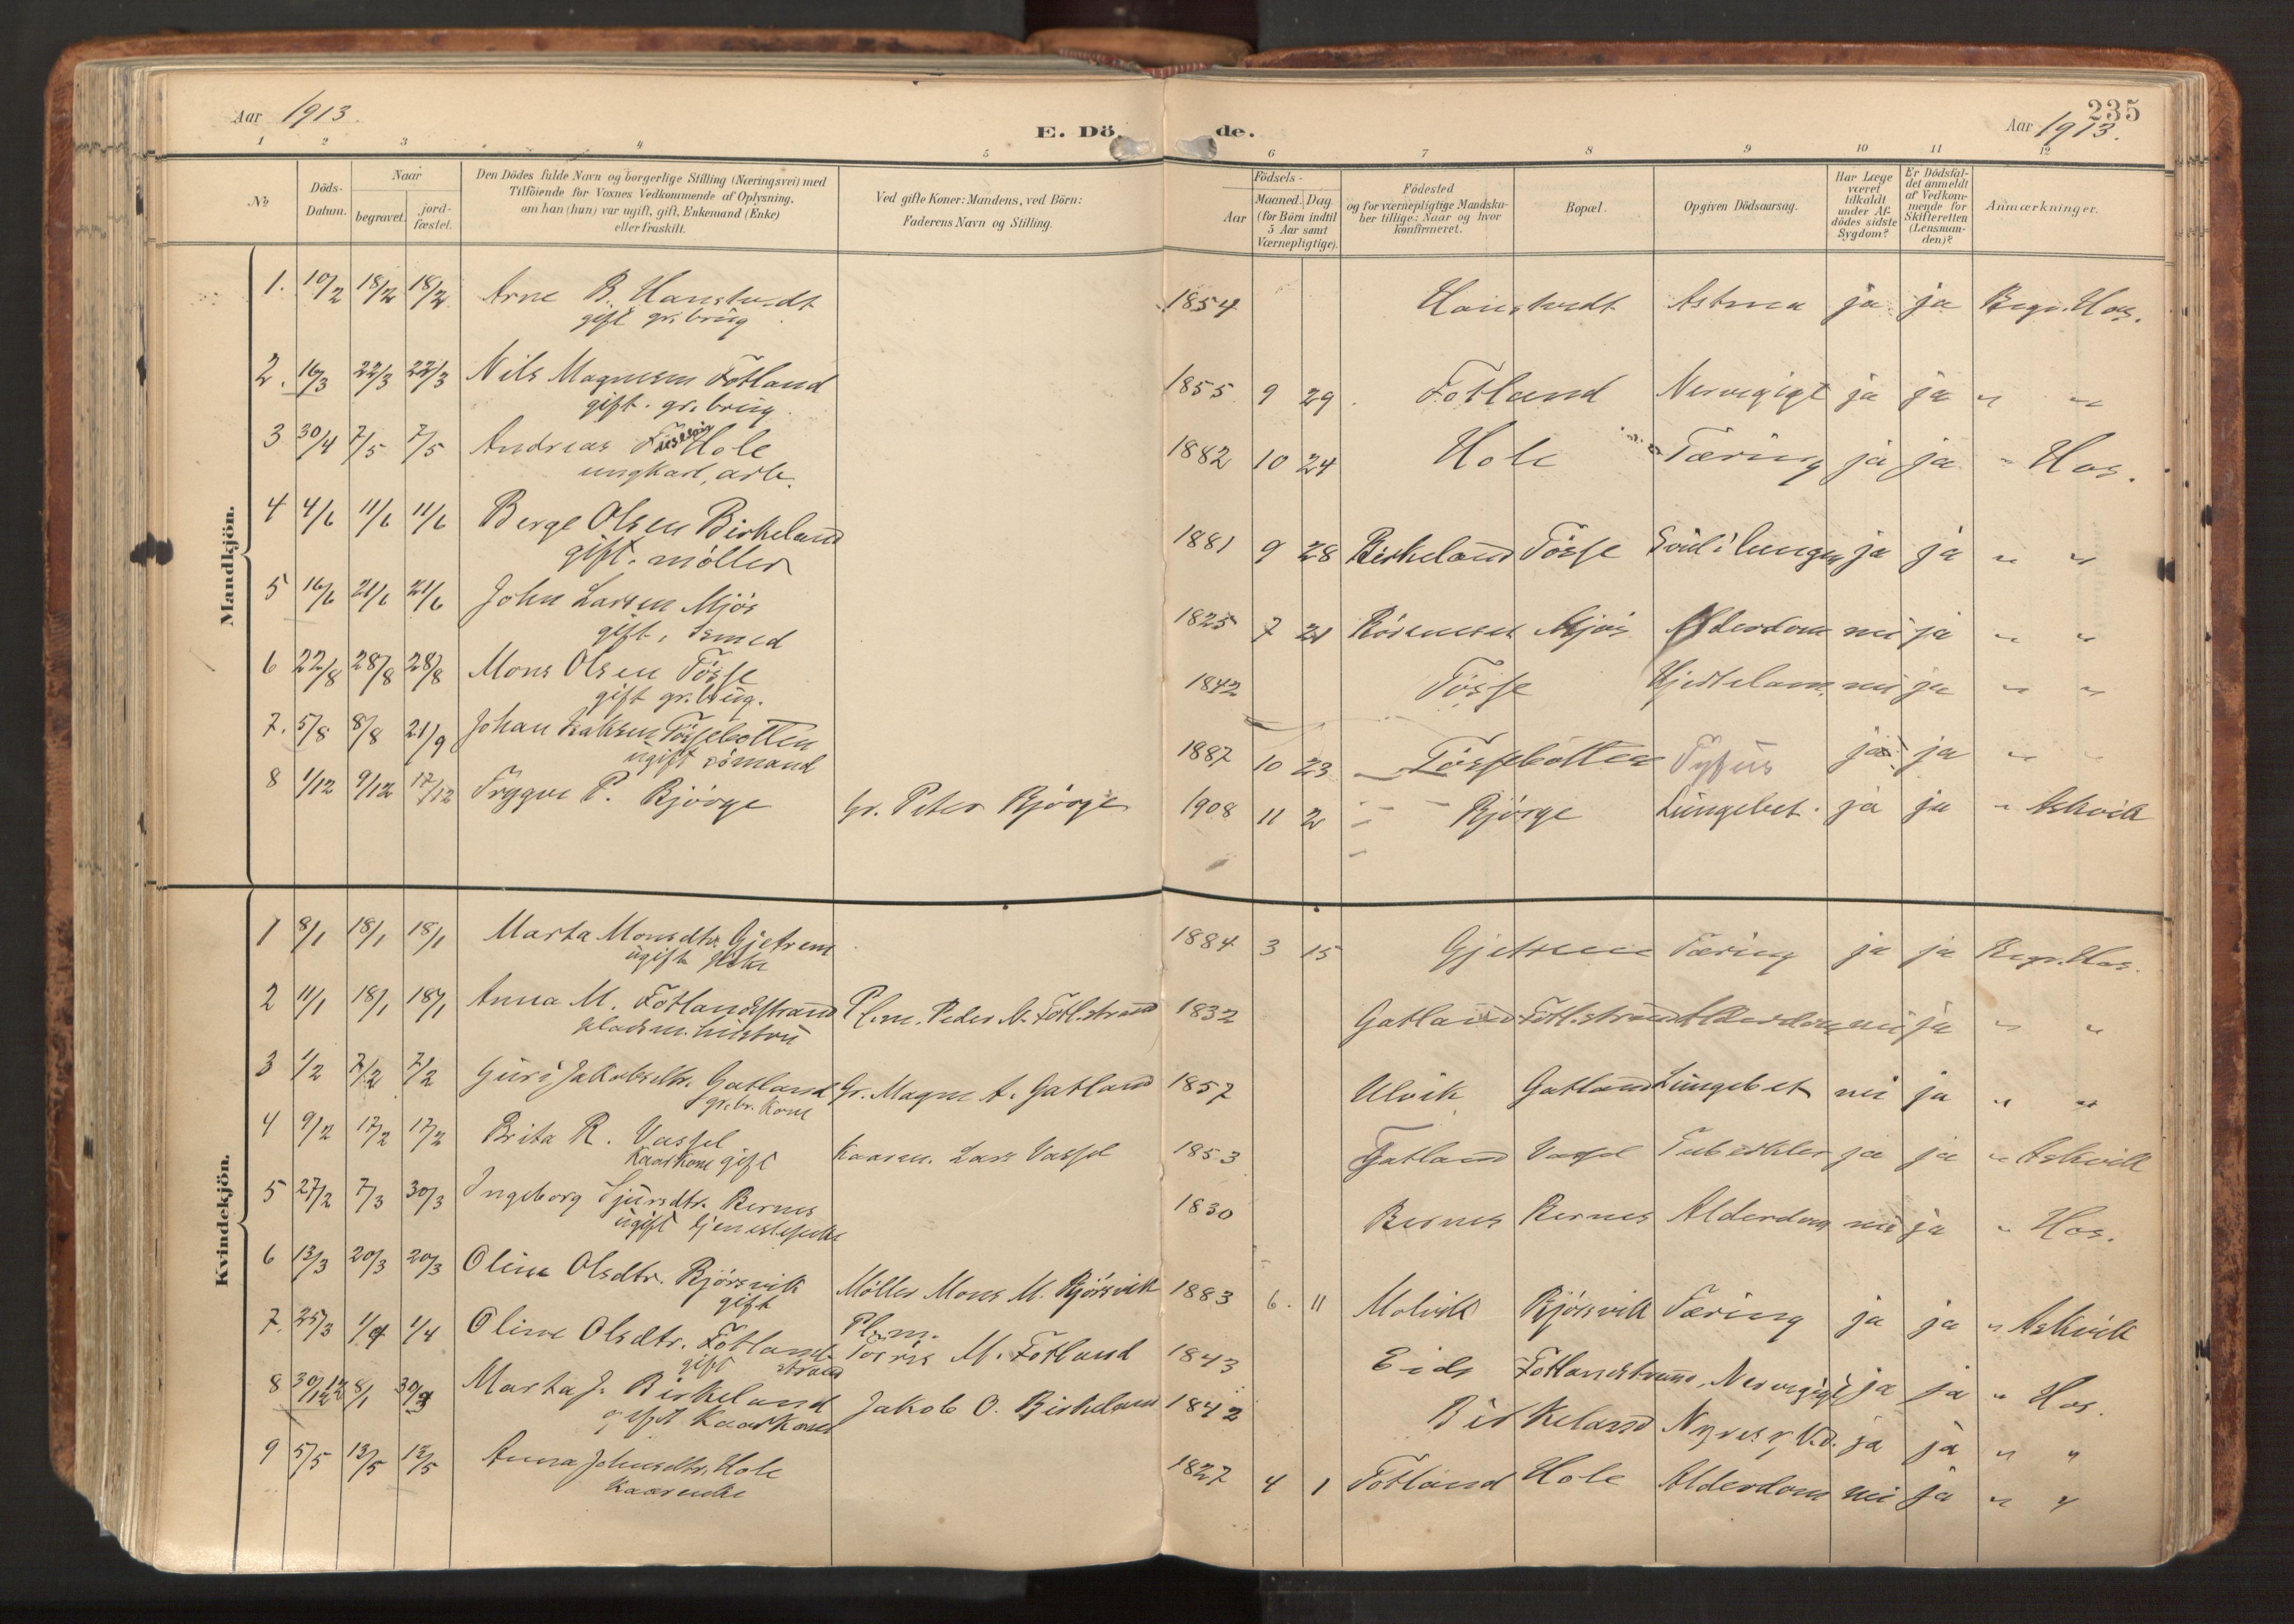 Aar 1913.
E. Dö de.
235
Aar 1913.
1 2 3 4 5 6 7 8 9 10 11 12
No
Döds-Datum.
Naar
begravet.
jord-fæstet.
Den Dödes fulde Navn og borgerlige Stilling (Næringsvei) med
Tilföiende for Voxnes Vedkommende af Oplysning,
om han (hun) var ugift, gift, Enkemand (Enke)
eller fraskilt.
Ved gifte Koner: Mandens, ved Börn:
Faderens Navn og Stilling.
Födsels-
Aar
Maaned. Dag.
(for Börn indtil
5 Aar samt
Værnepligtige).
Födested
og for værnepligtige Mandska-
ber tillige: Naar og hvor
konfirmeret.
Bopæl.
Opgiven Dödsaarsag.
Har Læge
været
tilkaldt
under Af-
dödes sidste
Sygdom?
Er Dödsfal-
det anmeldt
af Vedkom-
mende for
Skifteretten
(Lensman-
den)?
Anmærkninger.
Mandkjön.
1. 10/2 18/2 18/2 Arne B. Hanstvedt 1854 Hanstvedt Astma ja ja Begr. Hos.
gift gr.brug
2. 16/3 22/3 22/3 Nils Magnesen Fotland 1855 9 29 Fotland Nervegigt ja ja " "
gift. gr.brug.
3 30/4 7/5 7/5 Andreas Hole 1882 10 24 Hole Tæring ja ja " Hos.
ungkarl, arb.
4 4/6 11/6 11/6 Berge Olsen Birkeland 1881 9 28 Birkeland Tösse lunger ja ja " "
gift. möller
5 16/6 21/6 21/6 John Larsen Mjös 1825 7 21 Mjös Alderdom nei ja " "
gift, smed
6 22/8 28/8 28/8 Mons Olsen Tösse 1842 Tösse Hjertelam. nei ja " "
gift gr.brug.
7. 5/8 8/8 21/9 Johan Isaksen Tössebotten 1887 10 23 Tössebotten Tyfus ja ja " "
ugift sömand
8 1/12 9/12 17/12 Trygve P. Björge Gr. Peter Björge 1908 11 2 Björge Lungebet. ja ja " Askvik
Kvindekjön.
1 8/1 18/1 18/1 Marta Monsdtr. Gjetrem 1884 3 15 Gjetrem Tæring ja ja Begr. Hos.
ugift
2 11/1 18/1 18/1 Anna M. Fotlandsstrand Pl.m. Peder N. Fotl.strand 1832 Gatland Fotl.strand Alderdom nei ja " "
pladsm. hustru
3 1/2 7/2 7/2 Guri Jakobsdtr. Gatland Gr. Magne A. Gatland 1857 Ulvik Gatland Lungebet nei ja " "
gr.br. kone
4 9/2 17/2 17/2 Brita R. Vassel Kaarm. Lars Vassel 1853 Fotland Vassel Tuberkler ja ja " Askvik
Kaarkone gift
5 27/2 7/3 30/3 Ingeborg Sjursdtr. Bernes 1830 Bernes Bernes Alderdom nei ja " Hos.
ugift tjenestepike
6 13/3 20/3 20/3 Oline Olsdtr. Björsvik Möller Mons M. Björsvik 1883 6. 11 Molvik Björsvik Tæring ja ja " Askvik
gift
7. 25/3 1/4 1/4 Oline Olsdtr. Fotland- Pl.m. Torris M. Fotland 1843 Eids Fotlandstrand. Nervegigt ja ja " Hos.
gift strand
8 30/12 12 8/1 30/3 Marta J. Birkeland Jakob O. Birkeland 1842 Birkeland ja ja " "
gift Kaarkone
9 5/5 13/5 13/5 Anna Johnsdtr. Hole 1827 4 1 Totland Hole Alderdom nei ja " "
Kaarenke